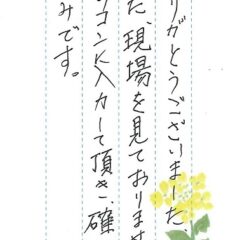 りがとうございました。
た、現場を見ておりませ
ソコンに入力して頂き、確
みです。